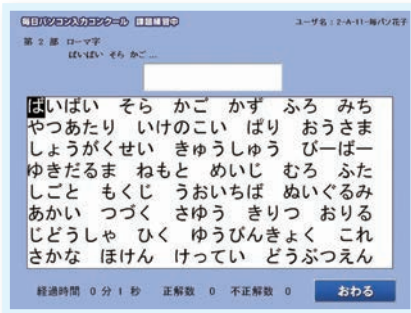 毎日パソコン入力コンクール 課題練習中
ユーザ名：2-A-11-毎パソ花子
第 2 部 ローマ字
ばいばい そら かご ...
ばいばい そら かご かず ふろ みち
やつあたり いけのこい ぱり おうさま
しょうがくせい きゅうしゅう びーばー
ゆきだるま ねもと めいじ むろ ふた
しごと もくじ うおいちば ぬいぐるみ
あかい つづく さゆう きりつ おりる
じどうしゃ ひく ゆうびんきょく これ
さかな ほけん けってい どうぶつえん
経過時間 0 分 1 秒 正解数 0 不正解数 0 おわる